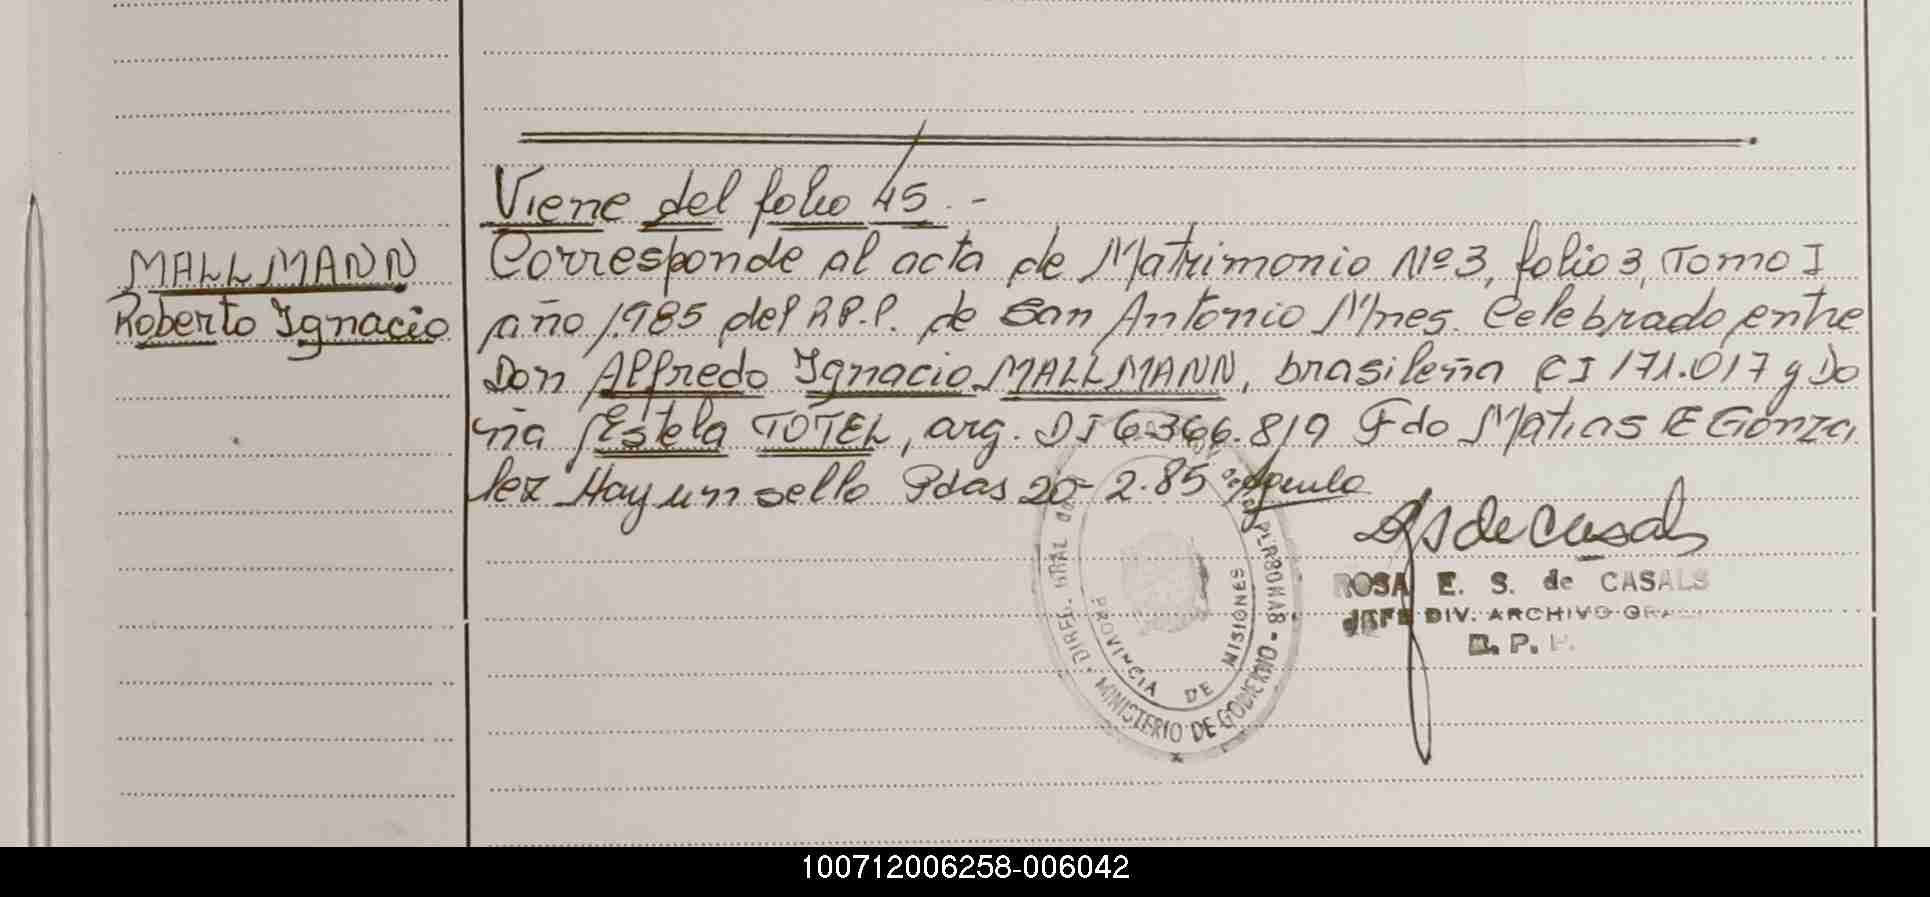 Viene del folio 45.-
MALLMANN
Roberto Ignacio
Corresponde al acta de Matrimonio Nº 3, folio 3, Tomo I
año 1985 del R.P.P. de San Antonio Mnes. Celebrado entre
Don Alfredo Ignacio MALLMANN, brasileña CI 171.017 y Do
ña Estela TOTEL, arg. DI 6.366.819 Fdo Matias E Gonza
lez Hay un sello Pdas 20-2.85
ROSA E. S. de CASALS
JEFE DIV. ARCHIVO GRAL
R. P. P.
DIREC. GRAL DE PERSONAS - MINISTERIO DE GOBIERNO
PROVINCIA DE MISIONES
100712006258-006042